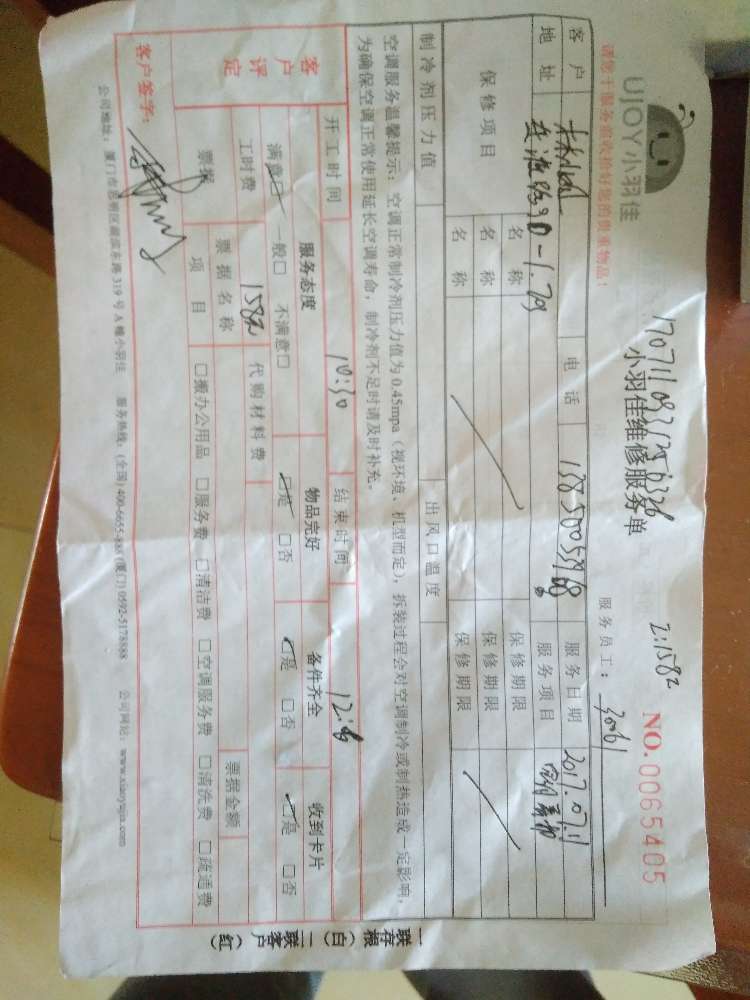 UJOY小羽佳
请您开服务前收拾好您的贵重物品!
小羽佳维修服务单
NO.0065405
服务员工: 30061
客户 电话 服务日期 2017.07.11
地址 服务项目
保修项目 名称 保修期限
名称 保修期限
名称 保修期限
制冷剂压力值 出风口温度
空调服务温馨提示: 空调正常制冷剂压力值为0.45mpa (视环境、机型而定), 拆装过程会对空调制冷或制热造成一定影响,
为确保空调正常使用延长空调寿命, 制冷剂不足时请及时补充。
开工时间 10:30 结束时间
客户评定 服务态度 物品完好 备件齐全 收到卡片
满意☑ 一般□ 不满意□ ☑是 □否 ☑是 □否 ☑是 □否
工时费 158元 代购材料费
票据 票据名称 票据金额
项目 □搬办公用品 □服务费 □清洁费 □空调服务费 □清洗费 □疏通费
客户签字:
公司地址: 厦门市思明区湖滨东路319号A幢小羽佳 服务热线: (全国)400-6655-888 (厦门)0592-5178888 公司网站: www.xiaoyujia.com
一联存根(白) 二联客户(红)